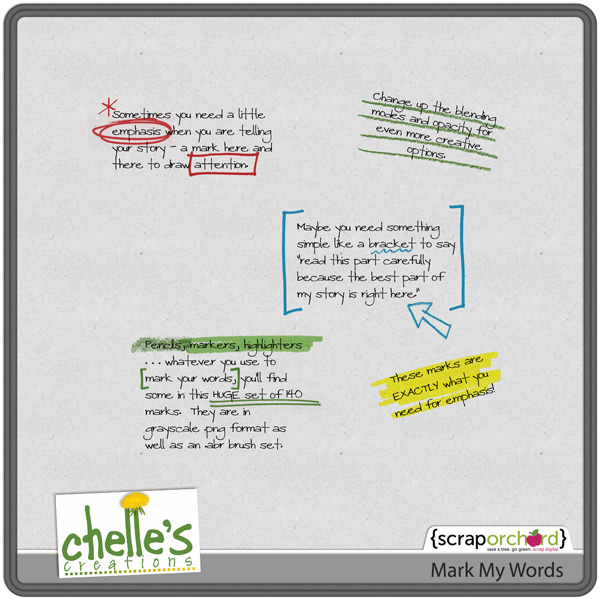 *Sometimes you need a little
emphasis when you are telling
your story - a mark here and
there to draw attention.
Change up the blending
modes and opacity for
even more creative
options.
Maybe you need something
simple like a bracket to say
"read this part carefully
because the best part of
my story is right here."
Pencils, markers, highlighters
. . . whatever you use to
mark your words, you'll find
some in this HUGE set of 140
marks. They are in
grayscale .png format as
well as an .abr brush set.
These marks are
EXACTLY what you
need for emphasis!
chelle's
creations
{scraporchard}
save a tree. go green. scrap digital.
Mark My Words